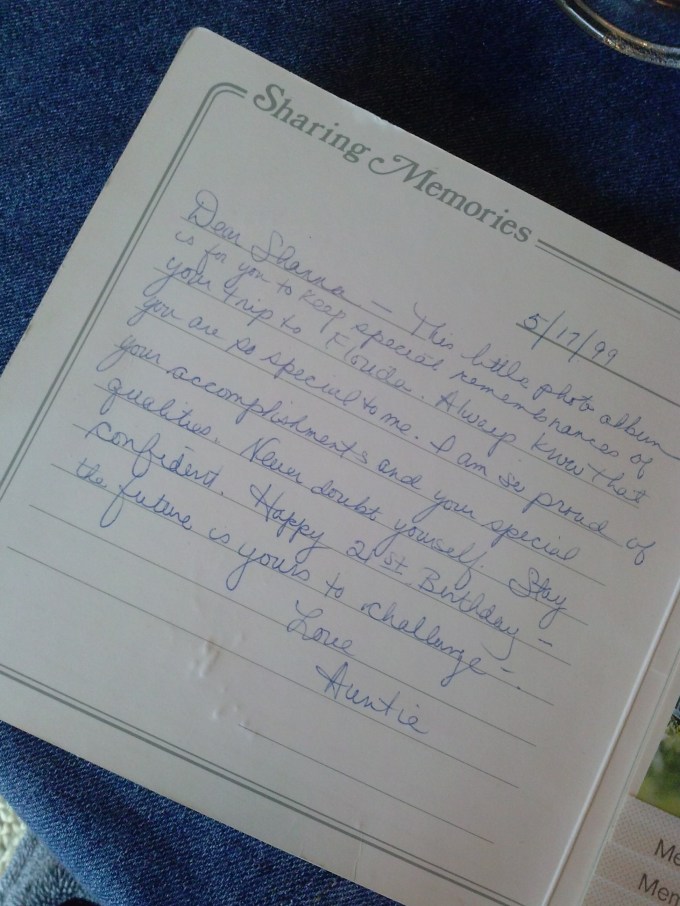 Sharing Memories
5/17/99
Dear Shanna — This little photo album
is for you to keep special remembrances of
your trip to Florida. Always know that
you are so special to me. I am so proud of
your accomplishments and your special
qualities. Never doubt yourself. Stay
confident. Happy 21st Birthday –
the future is yours to challenge –.
Love
Auntie
Me
Mem